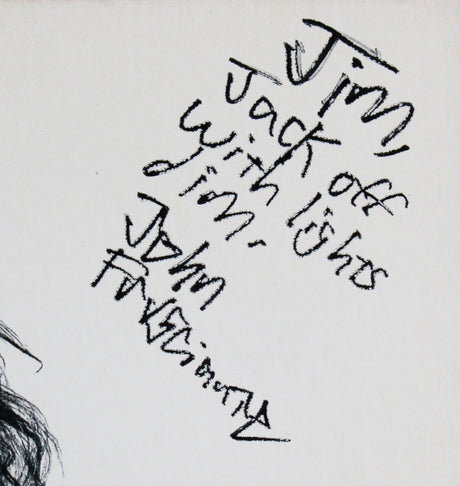 Jim,
Jack off
with lights
dim,
John
Frusciante